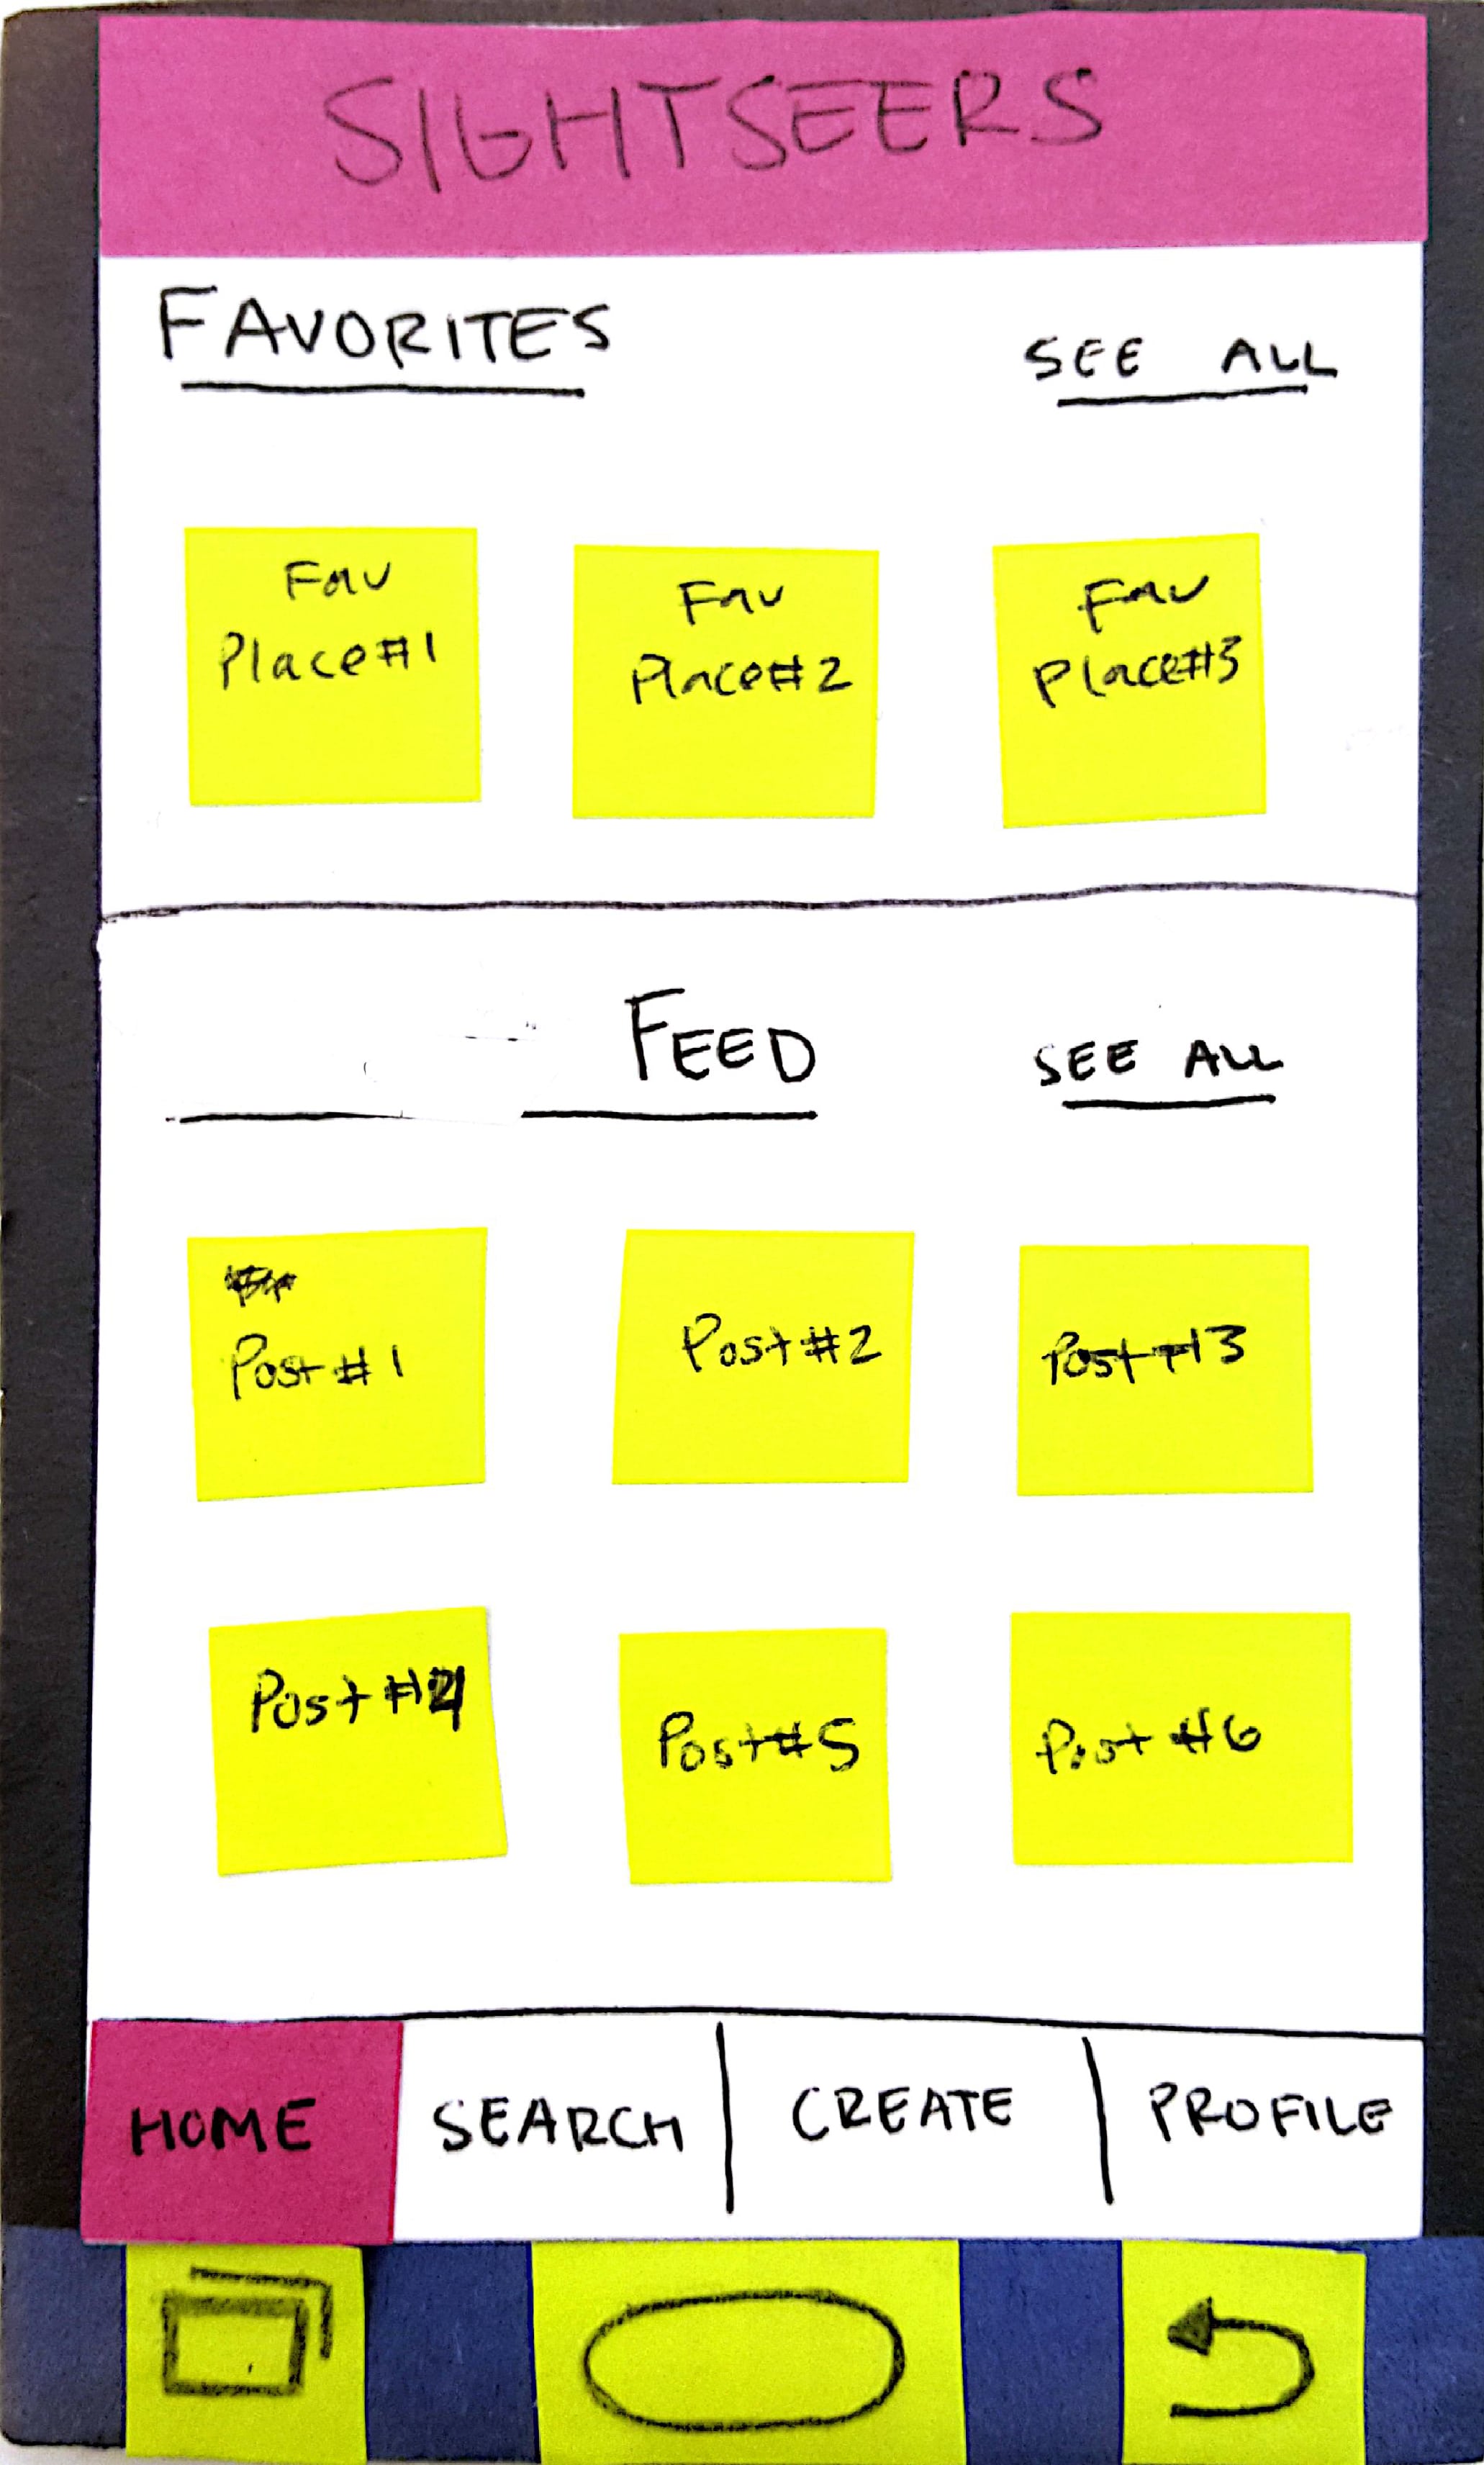 SIGHTSEERS
FAVORITES SEE ALL
Fav
Place#1
Fav
Place#2
Fav
Place#3
FEED SEE ALL
Post#1
Post#2
Post#3
Post#4
Post#5
Post#6
HOME SEARCH CREATE PROFILE